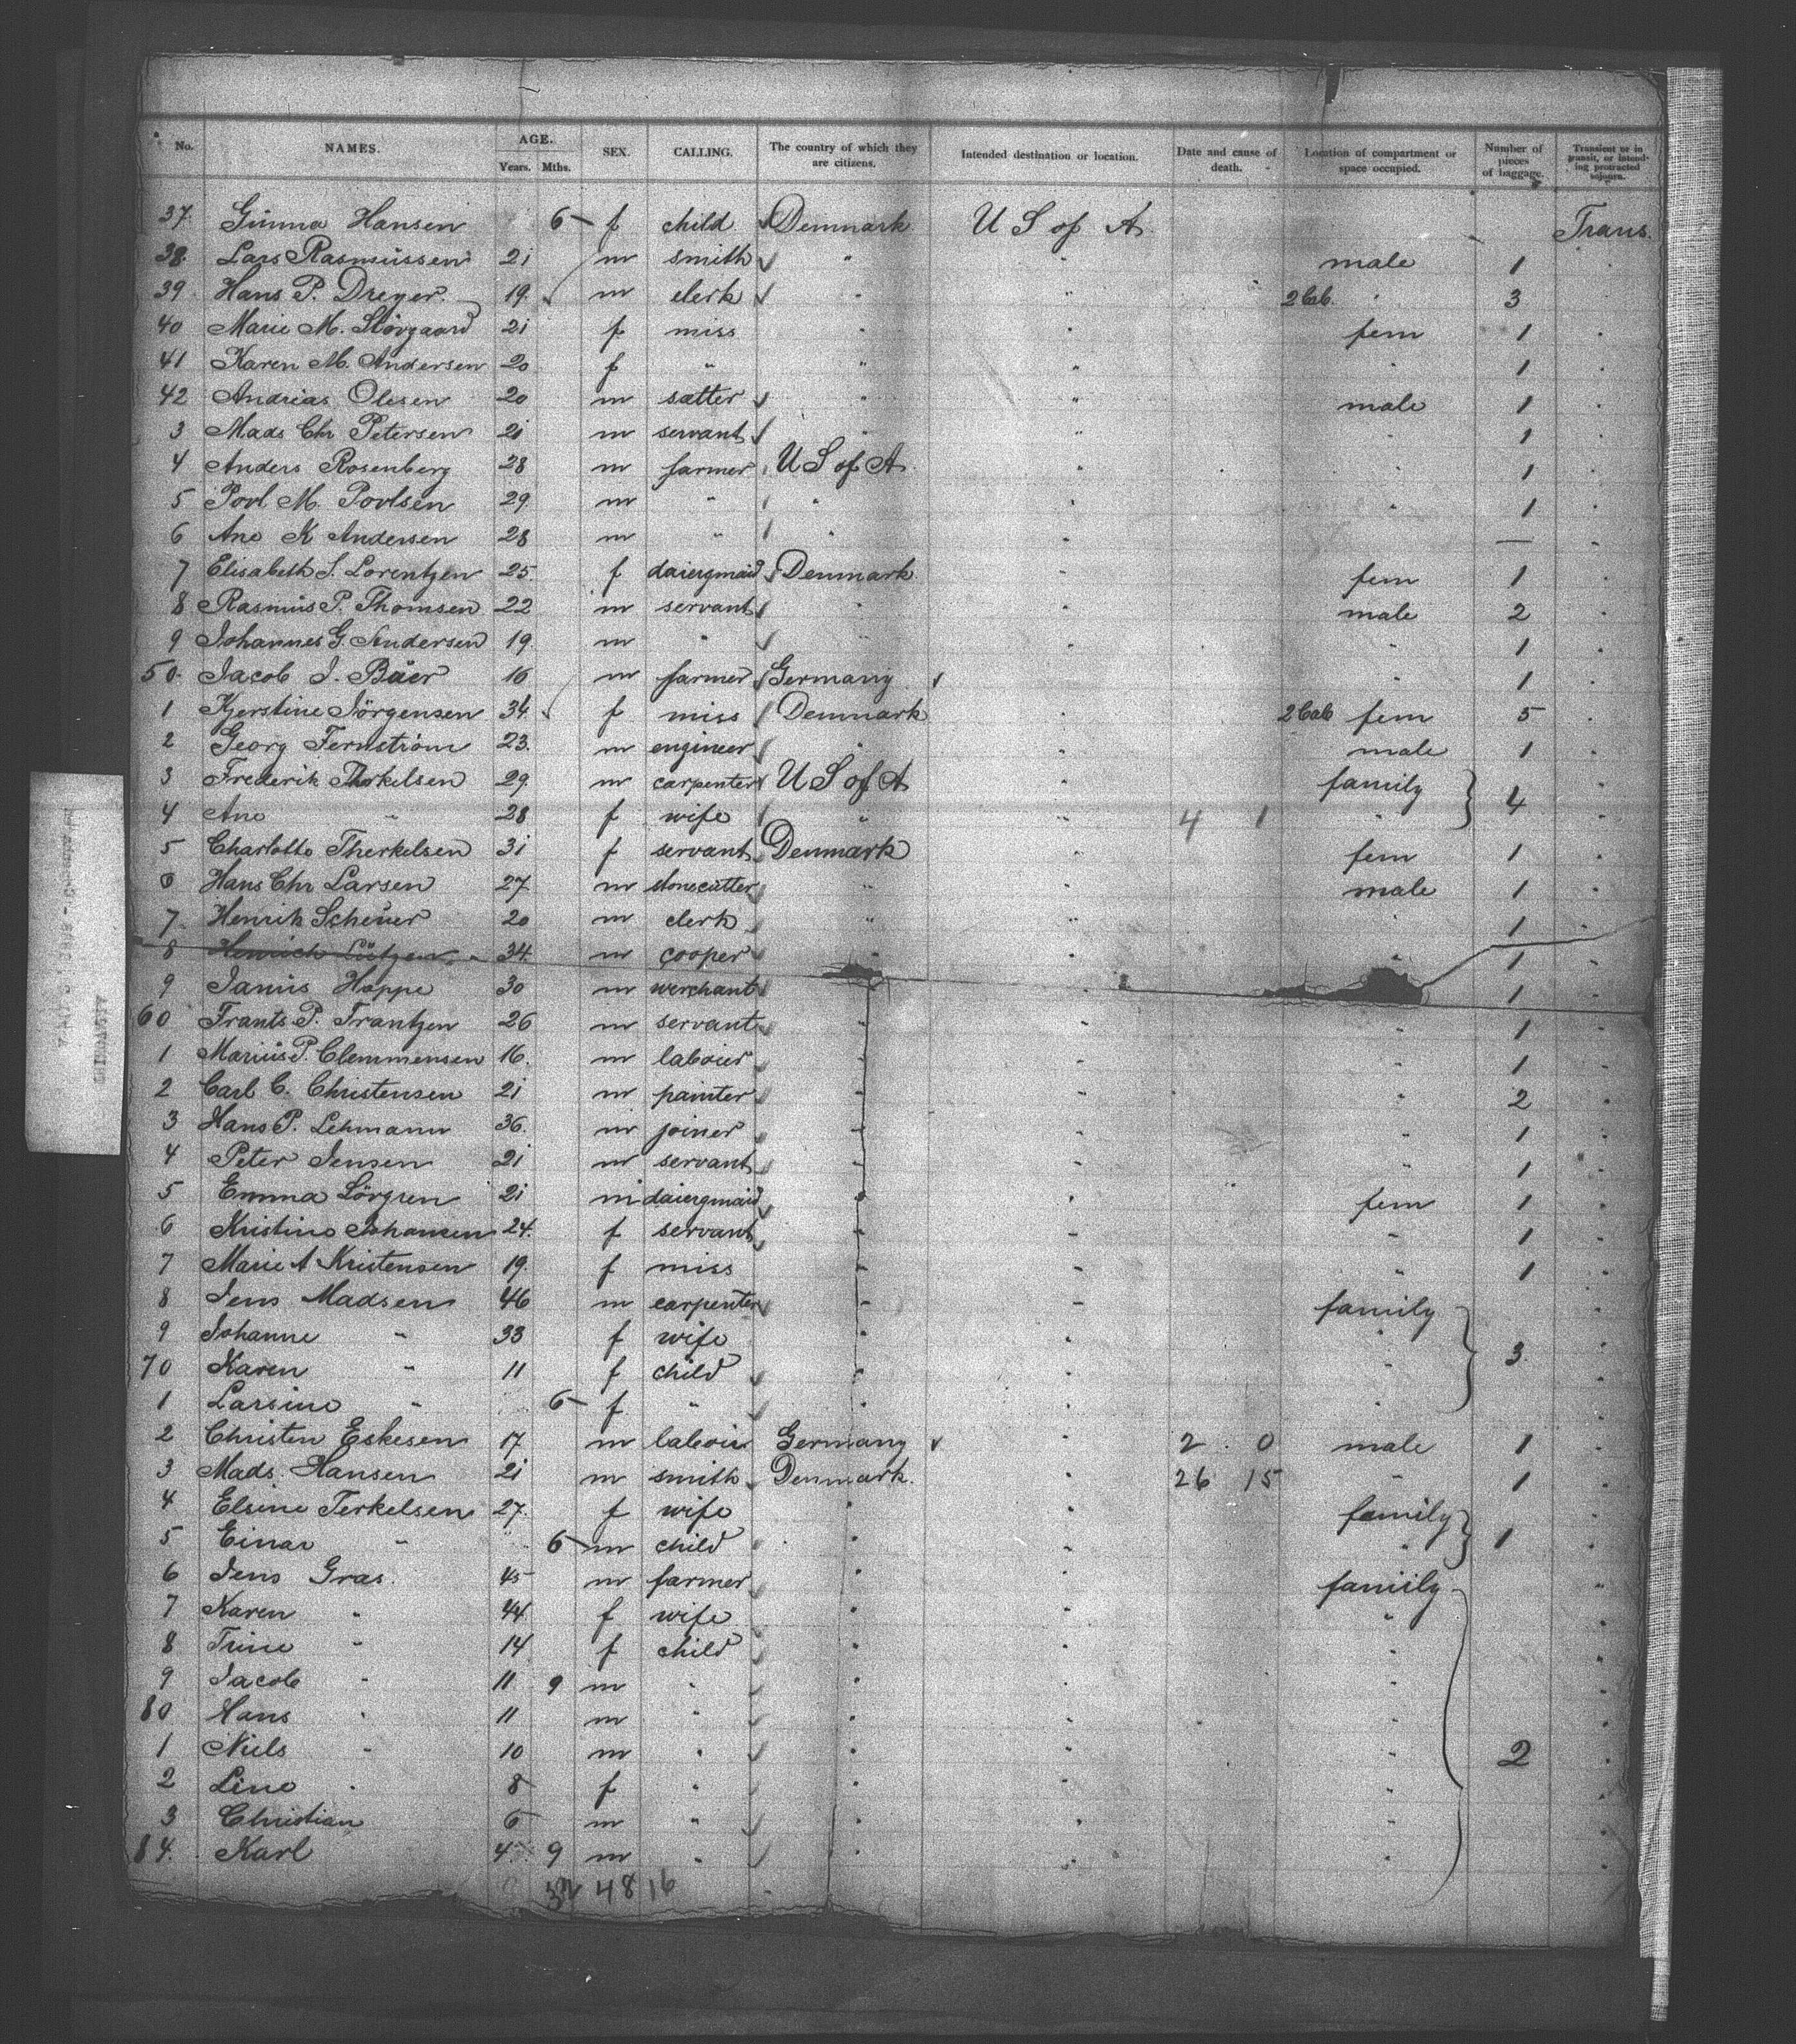 No. NAMES. AGE. Years. Mths. SEX. CALLING. The country of which they are citizens. Intended destination or location. Date and cause of death. Location of compartment or space occupied. Number of pieces of baggage. Transient or in transit, or intending protracted sojourn.
37. Gunna Hansen 6 f child Denmark U S of A Trans.
38. Lars Rasmussen 21 m smith " " male 1 "
39 Hans P. Dreyer. 19. m clerk " " 2 Cab. " 3 "
40 Marie M. Slovgaard 21 f miss " " fem 1 "
41 Karen M. Andersen 20 f " " " " 1 "
42 Andrias Olesen 20 m satter " " male 1 "
3 Mads Chr Petersen 21 m servant " " " 1 "
4 Anders Rosenberg 28 m farmer U S of A " " 1 "
5 Povl M. Povlsen 29. m " " " " 1 "
6 Ane K Andersen 28 m " " " — "
7 Elisabeth S. Lorentzen 25. f daiergmaid Denmark " fem 1 "
8 Rasmus P. Thomsen 22 m servant " " male 2 "
9 Johannes G. Andersen 19. m " " " " 1 "
50. Jacob J. Büer 16 m farmer Germany " " 1 "
1 Kjerstine Jörgensen 34. f miss Denmark " 2 Cab fem 5 "
2 Georg Fernström 23. m engineer " " male 1 "
3 Frederik Therkelsen 29. m carpenter U S of A " family 4 "
4 Ane " 28 f wife " " 4 1 " "
5 Charlotte Therkelsen 31 f servant Denmark " fem 1 "
6 Hans Chr Larsen 27. m stonecutter " " male 1 "
7. Henrik Scheuer 20 m clerk " " " 1 "
8 Henrich Lützen 34. m cooper " " " 1 "
9 Janus Hoppe 30 m merchant " " 1 "
60 Frants P. Frantzen 26 m servant " " " 1 "
1 Marius P. Clemmensen 16. m labouer " " " 1 "
2 Carl C. Christensen 21 m painter " " " 2 "
3 Hans P. Lehmann 36. m joiner " " " 1 "
4 Peter Jensen 21 m servant " " " 1 "
5 Emma Lörgren 21 m daiergmaid " " fem 1 "
6 Kristine Johansen 24. f servant " " " 1 "
7 Marie A Kristensen 19. f miss " " " 1 "
8 Jens Madsen 46 m carpenter " " family "
9 Johanne " 33 f wife " " " 3. "
70 Karen " 11 f child " " " "
1 Larsine " 6 f " " " " "
2 Christen Eskesen 17 m labouer Germany " 2 0 male 1 "
3 Mads. Hansen 21 m smith Denmark. " 26 15 " 1 "
4 Elsine Terkelsen 27. f wife " " family "
5 Einar " 6 m child " " " 1 "
6 Jens Gras. 45 m farmer " " family "
7 Karen " 44. f wife " " "
8 Trine " 14 f child " " " "
9 Jacob " 11 9 m " " " " "
80 Hans " 11 m " " " " "
1 Niels " 10 m " " " " 2 "
2 Line " 8 f " " " " "
3 Christian 6 m " " " " "
84. Karl 4 9 m " " " " "
32 48 16